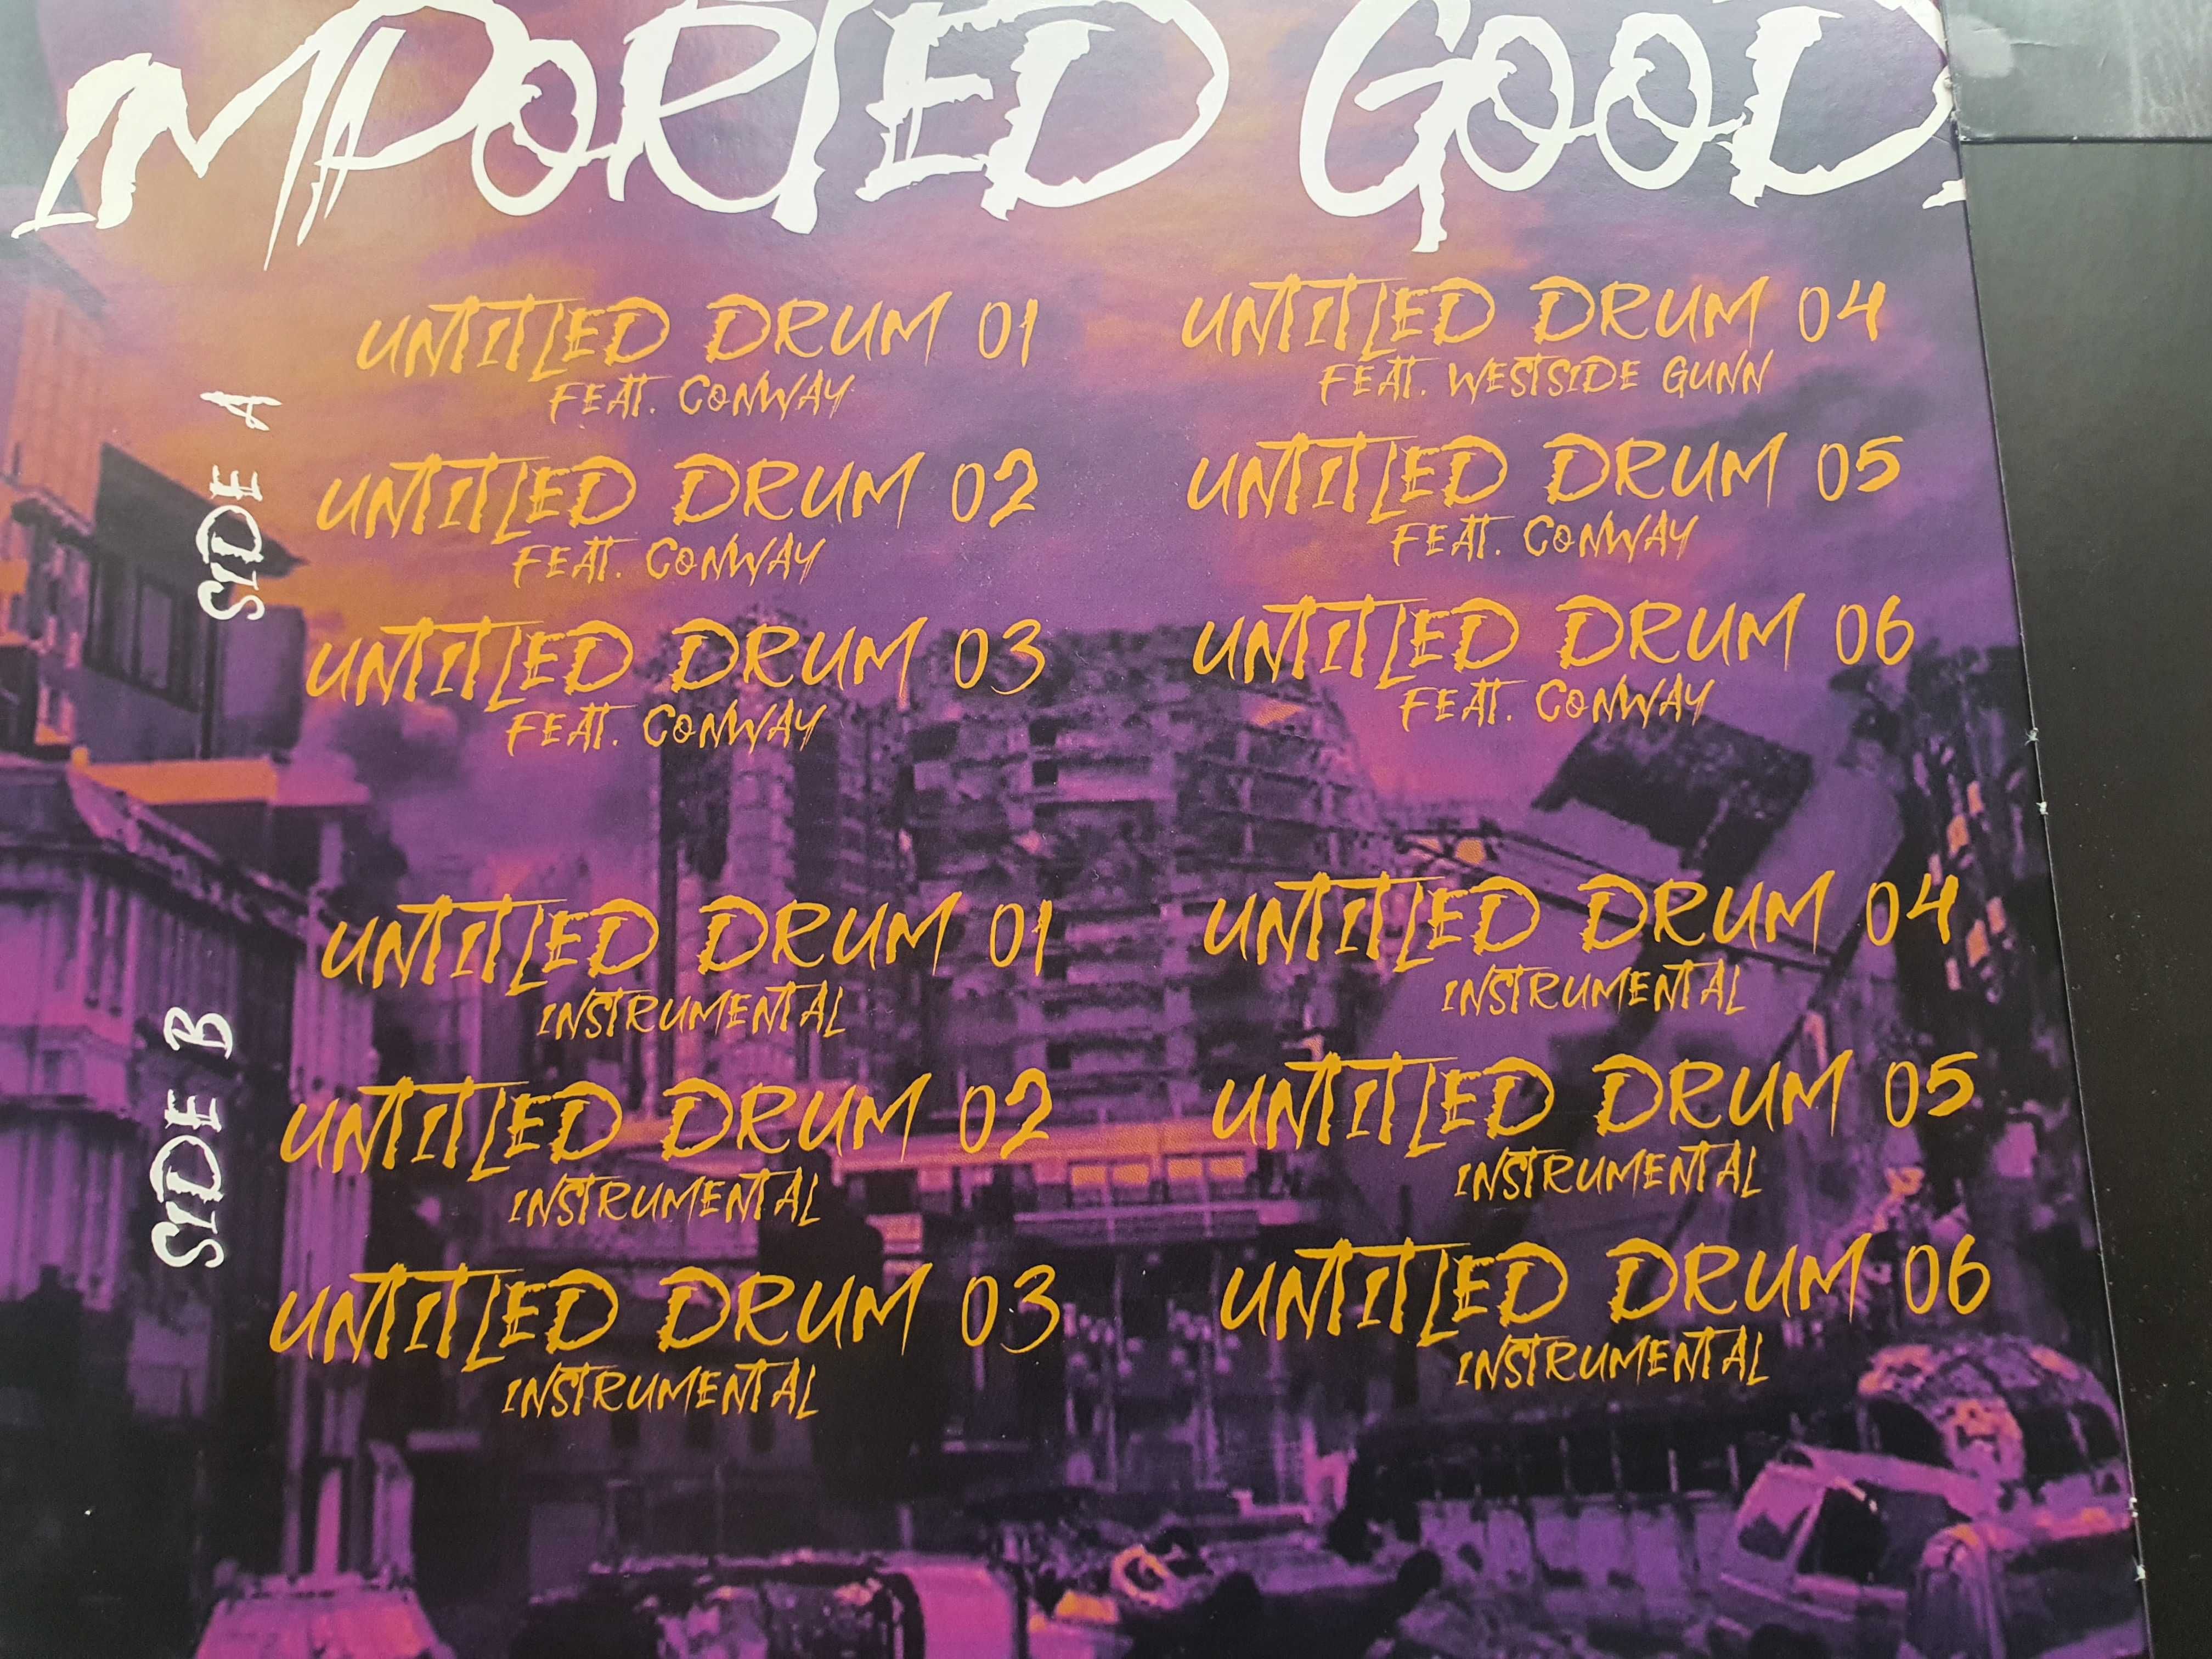 IMPORTED GOODS
SIDE A
UNTITLED DRUM 01
FEAT. CONWAY
UNTITLED DRUM 02
FEAT. CONWAY
UNTITLED DRUM 03
FEAT. CONWAY
UNTITLED DRUM 04
FEAT. WESTSIDE GUNN
UNTITLED DRUM 05
FEAT. CONWAY
UNTITLED DRUM 06
FEAT. CONWAY
SIDE B
UNTITLED DRUM 01
INSTRUMENTAL
UNTITLED DRUM 02
INSTRUMENTAL
UNTITLED DRUM 03
INSTRUMENTAL
UNTITLED DRUM 04
INSTRUMENTAL
UNTITLED DRUM 05
INSTRUMENTAL
UNTITLED DRUM 06
INSTRUMENTAL